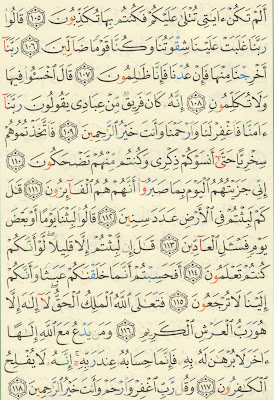 أَلَمْ تَكُنْ ءَايَٰتِى تُتْلَىٰ عَلَيْكُمْ فَكُنتُم بِهَا تُكَذِّبُونَ ١٠٥ قَالُوا۟
رَبَّنَا غَلَبَتْ عَلَيْنَا شِقْوَتُنَا وَكُنَّا قَوْمًا ضَآلِّينَ ١٠٦ رَبَّنَآ
أَخْرِجْنَا مِنْهَا فَإِنْ عُدْنَا فَإِنَّا ظَٰلِمُونَ ١٠٧ قَالَ ٱخْسَـُٔوا۟ فِيهَا
وَلَا تُكَلِّمُونِ ١٠٨ إِنَّهُۥ كَانَ فَرِيقٌ مِّنْ عِبَادِى يَقُولُونَ رَبَّنَآ
ءَامَنَّا فَٱغْفِرْ لَنَا وَٱرْحَمْنَا وَأَنتَ خَيْرُ ٱلرَّٰحِمِينَ ١٠٩ فَٱتَّخَذْتُمُوهُمْ
سِخْرِيًّا حَتَّىٰٓ أَنسَوْكُمْ ذِكْرِى وَكُنتُم مِّنْهُمْ تَضْحَكُونَ ١١٠
إِنِّى جَزَيْتُهُمُ ٱلْيَوْمَ بِمَا صَبَرُوٓا۟ أَنَّهُمْ هُمُ ٱلْفَآئِزُونَ ١١١ قَٰلَ
كَمْ لَبِثْتُمْ فِى ٱلْأَرْضِ عَدَدَ سِنِينَ ١١٢ قَالُوا۟ لَبِثْنَا يَوْمًا أَوْ بَعْضَ
يَوْمٍ فَسْـَٔلِ ٱلْعَآدِّينَ ١١٣ قَٰلَ إِن لَّبِثْتُمْ إِلَّا قَلِيلًا لَّوْ أَنَّكُمْ
كُنتُمْ تَعْلَمُونَ ١١٤ أَفَحَسِبْتُمْ أَنَّمَا خَلَقْنَٰكُمْ عَبَثًا وَأَنَّكُمْ
إِلَيْنَا لَا تُرْجَعُونَ ١١٥ فَتَعَٰلَى ٱللَّهُ ٱلْمَلِكُ ٱلْحَقُّ لَآ إِلَٰهَ إِلَّا
هُوَ رَبُّ ٱلْعَرْشِ ٱلْكَرِيمِ ١١٦ وَمَن يَدْعُ مَعَ ٱللَّهِ إِلَٰهًا
ءَاخَرَ لَا بُرْهَٰنَ لَهُۥ بِهِۦ فَإِنَّمَا حِسَابُهُۥ عِندَ رَبِّهِۦٓ إِنَّهُۥ لَا يُفْلِحُ
ٱلْكَٰفِرُونَ ١١٧ وَقُل رَّبِّ ٱغْفِرْ وَٱرْحَمْ وَأَنتَ خَيْرُ ٱلرَّٰحِمِينَ ١١٨